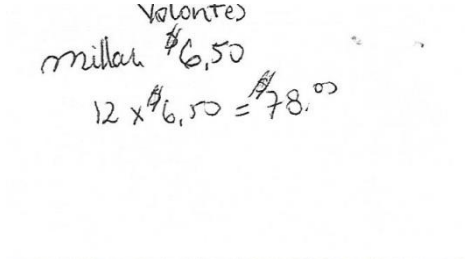 Volantes
millar $6,50
12 x $6,50 = $78.00